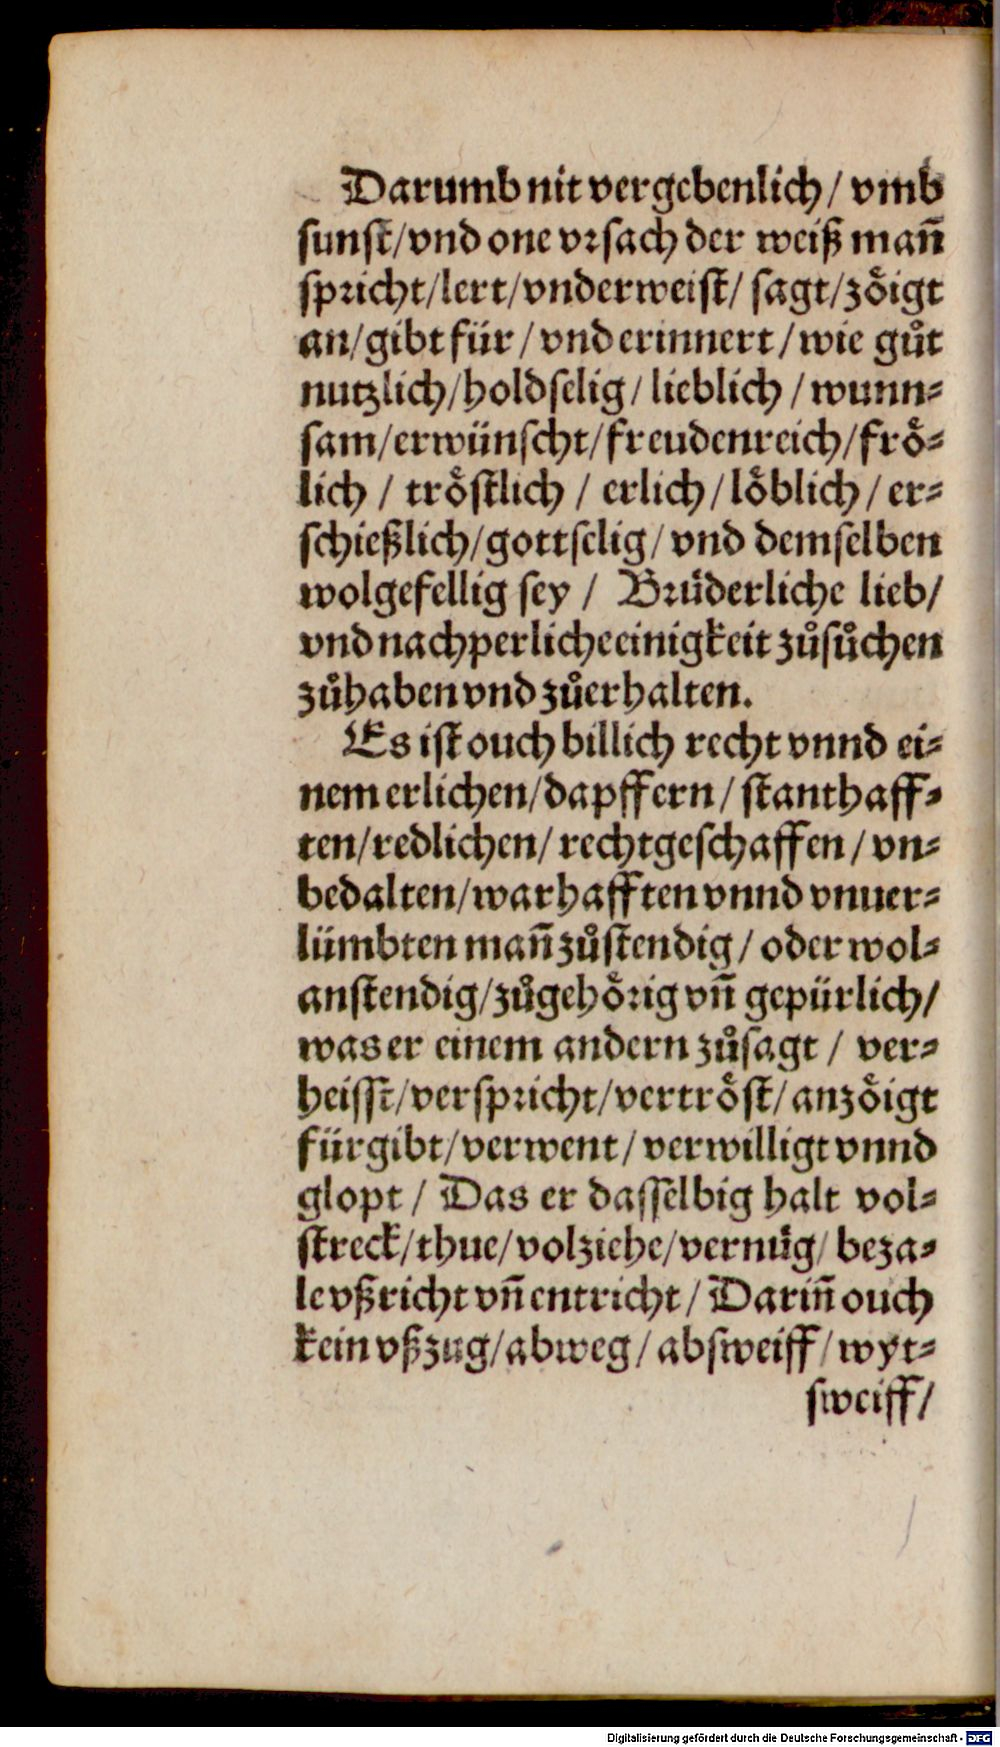 Darumb nit vergebenlich / vmb
sunſt/vnd one vꝛſach der weiß man̄
ſpꝛicht/lert/vnderweiſt/ ſagt/zoͤigt
an/gibt für / vnd erinnert / wie guͦt
nutzlich/holdſelig/ lieblich / wunn⸗
ſam/erwünſcht/freudenreich/froͤ⸗
lich / troͤſtlich / erlich/loͤblich / er⸗
ſchießlich/gottſelig/ vnd demſelben
wolgefellig ſey / Bꝛuͤderliche lieb/
vnd nachperliche einigkeit zuͦſuͦchen
zuͦhaben vnd zuͦerhalten.
Es iſt ouch billich recht vnnd ei⸗
nem erlichen/dapffern / ſtanthaff⸗
ten/redlichen/ rechtgeſchaffen / vn⸗
bedalten/warhafften vnnd vnuer⸗
lümbten man̄ zuͦſtendig / oder wol⸗
anſtendig/zuͦgehoͤꝛig vn̄ gepürlich/
was er einem andern zuͦſagt / ver⸗
heiſſt/verſpꝛicht/vertroͤſt/ anzoͤigt
fürgibt/verwent/ verwilligt vnnd
glopt / Das er daſſelbig halt vol⸗
ſtreck/thue/volziehe/vernuͤg/ beza⸗
le vßricht vn̄ entricht / Darin̄ ouch
kein vßzug/abweg/ abſweiff/ wyt⸗
ſweiff/
Digitalisierung gefördert durch die Deutsche Forschungsgemeinschaft - DFG